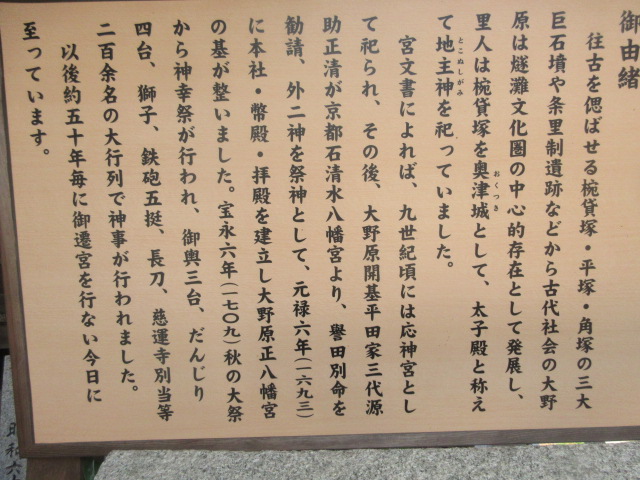 御由緒
往古を偲ばせる椀貸塚・平塚・角塚の三大
巨石墳や条里制遺跡などから古代社会の大野
原は燧灘文化圏の中心的存在として発展し、
里人は椀貸塚を奥津城おくつきとして、太子殿と称え
て地主神とこぬしがみを祀っていました。
宮文書によれば、九世紀頃には応神宮とし
て祀られ、その後、大野原開基平田家三代源
助正清が京都石清水八幡宮より、誉田別命を
勧請、外二神を祭神として、元禄六年(一六九三)
に本社・幣殿・拝殿を建立し大野原正八幡宮
の基が整いました。宝永六年(一七〇九)秋の大祭
から神幸祭が行われ、御輿三台、だんじり
四台、獅子、鉄砲五挺、長刀、慈運寺別当等
二百余名の大行列で神事が行われました。
以後約五十年毎に御遷宮を行ない今日に
至っています。
昭和六